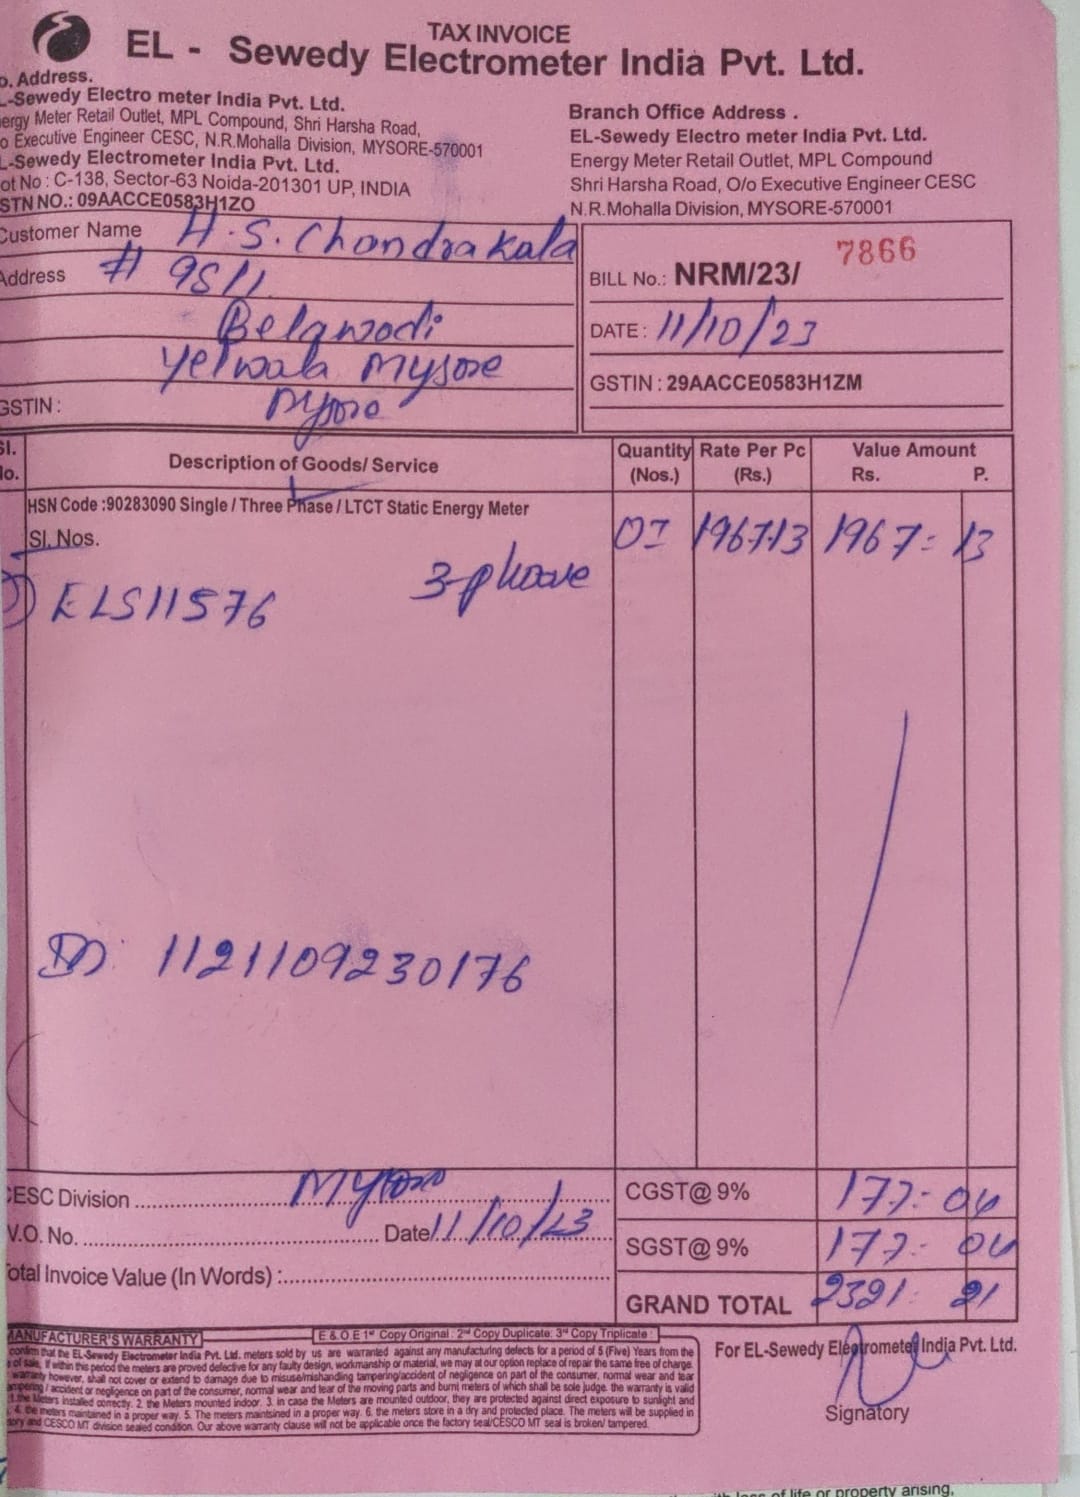 TAX INVOICE
EL - Sewedy Electrometer India Pvt. Ltd.
o. Address.
L-Sewedy Electro meter India Pvt. Ltd.
ergy Meter Retail Outlet, MPL Compound, Shri Harsha Road,
o Executive Engineer CESC, N.R.Mohalla Division, MYSORE-570001
L-Sewedy Electrometer India Pvt. Ltd.
ot No : C-138, Sector-63 Noida-201301 UP, INDIA
STN NO.: 09AACCE0583H1ZO
Branch Office Address .
EL-Sewedy Electro meter India Pvt. Ltd.
Energy Meter Retail Outlet, MPL Compound
Shri Harsha Road, O/o Executive Engineer CESC
N.R.Mohalla Division, MYSORE-570001
Customer Name H.S. Chandrakala
Address # 95/1
Belawadi
Yelwala Mysore
GSTIN : Mysore
7866
BILL No.: NRM/23/
DATE : 11/10/23
GSTIN : 29AACCE0583H1ZM
Sl. No. Description of Goods/ Service Quantity (Nos.) Rate Per Pc (Rs.) Value Amount Rs. P.
HSN Code :90283090 Single / Three Phase / LTCT Static Energy Meter
Sl. Nos. 01 1967.13 1967=13
3-phase
1) ELS11576
1121109230176
CESC Division Mysore
V.O. No. Date 11/10/23
Total Invoice Value (In Words) :
CGST@ 9% 177=04
SGST@ 9% 177=04
GRAND TOTAL 2321=21
MANUFACTURER'S WARRANTY
E & O.E 1st Copy Original : 2nd Copy Duplicate: 3rd Copy Triplicate :
confirm that the EL-Sewedy Electrometer India Pvt. Ltd. meters sold by us are warranted against any manufacturing defects for a period of 5 (Five) Years from the
of sale, If within this period the meters are proved defective for any faulty design, workmanship or material, we may at our option replace of repair the same free of charge.
warranty however, shall not cover or extend to damage due to misuse/mishandling tampering/accident of negligence on part of the consumer, normal wear and tear
ampering / accident or negligence on part of the consumer, normal wear and tear of the moving parts and burnt meters of which shall be sole judge. the warranty is valid
1. the Meters installed correctly. 2. the Meters mounted indoor. 3. in case the Meters are mounted outdoor, they are protected against direct exposure to sunlight and
4. the meters maintained in a proper way. 5. The meters maintained in a proper way. 6. the meters store in a dry and protected place. The meters will be supplied in
tory and CESCO MT division sealed condition. Our above warranty clause will not be applicable once the factory seal/CESCO MT seal is broken/ tampered.
For EL-Sewedy Electrometer India Pvt. Ltd.
Signatory
loss of life or property arising,